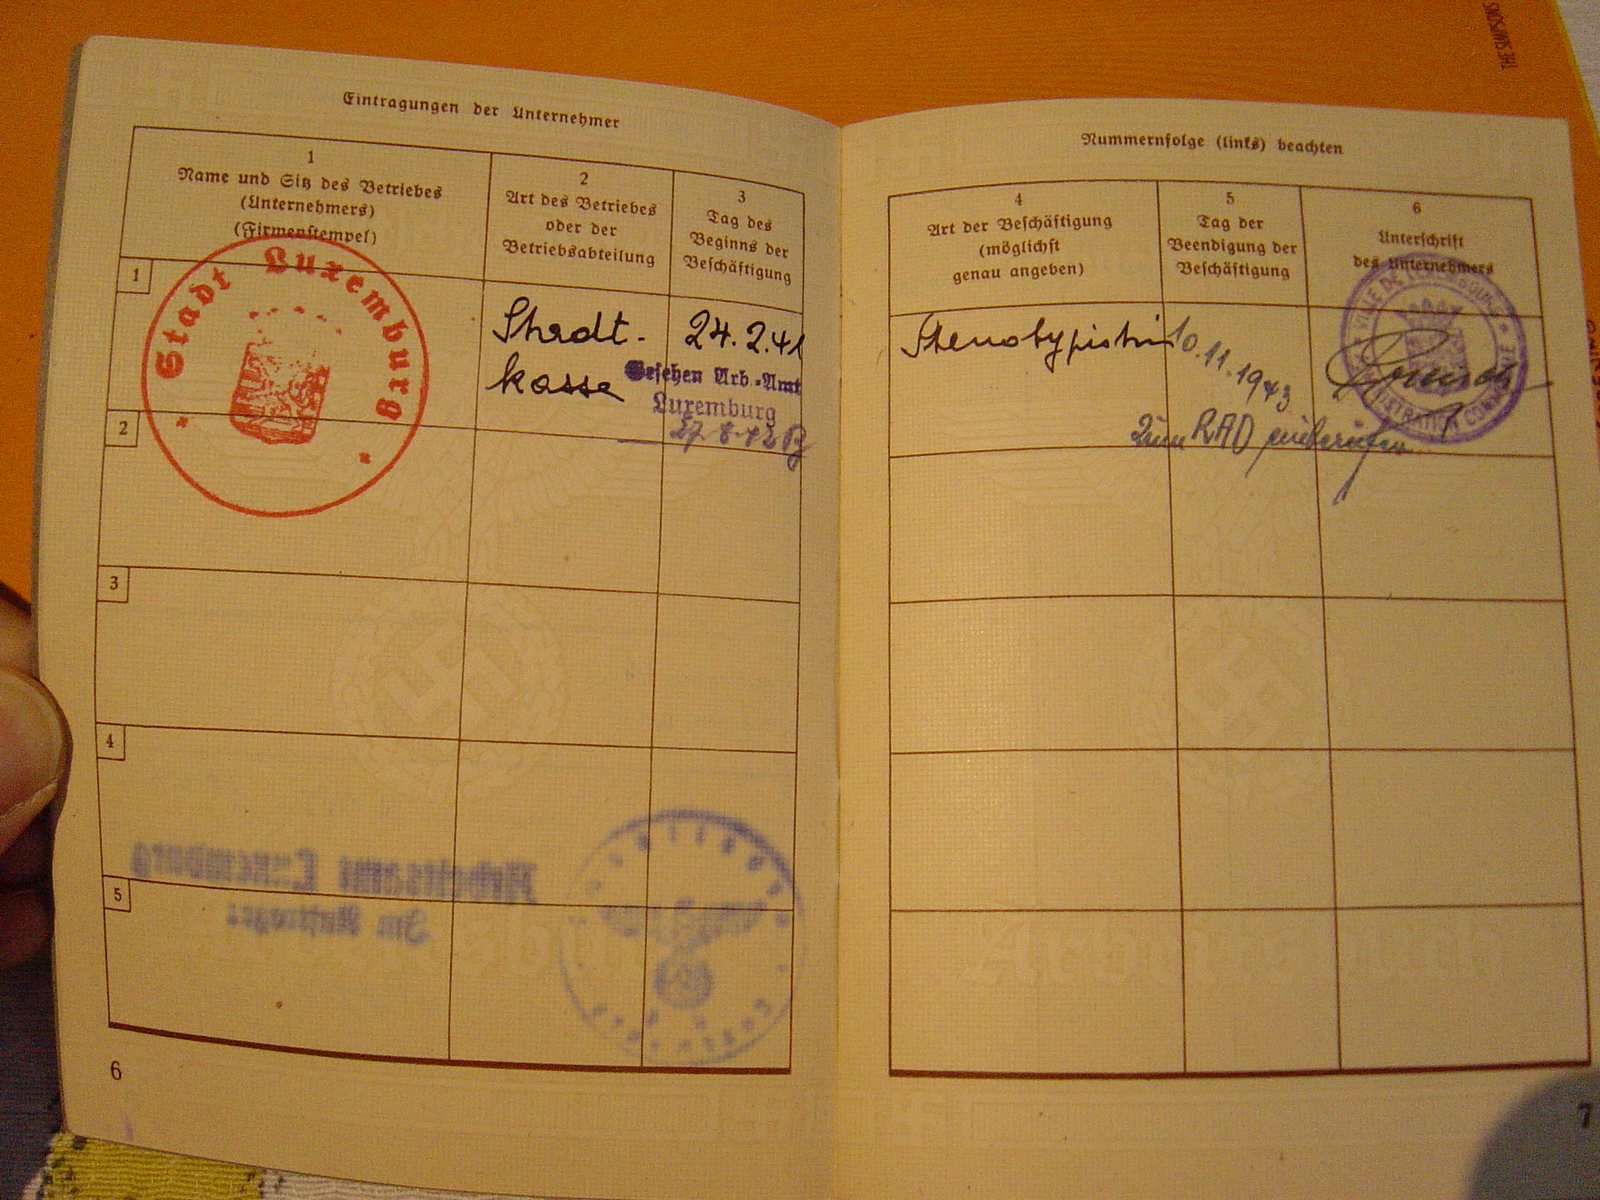 Eintragungen der Unternehmer
1
Name und Sitz des Betriebes
(Unternehmers)
(Firmenstempel)
2
Art des Betriebes
oder der
Betriebsabteilung
3
Tag des
Beginns der
Beschäftigung
1
Stadt Luxemburg
Stadt-
kasse
24.2.41
Gesehen Arb.-Amt
Luxemburg
27.8.42
2
3
4
5
Arbeitsamt Luxemburg
Im Auftrage:
6
Nummernfolge (links) beachten
4
Art der Beschäftigung
(möglichst
genau angeben)
5
Tag der
Beendigung der
Beschäftigung
6
Unterschrift
des Unternehmers
Stenotypistin
10.11.1943
zum RAD einberufen
VILLE DE LUXEMBOURG
ADMINISTRATION COMMUNALE
Arbeitsbuch
7
THE SIMPSONS